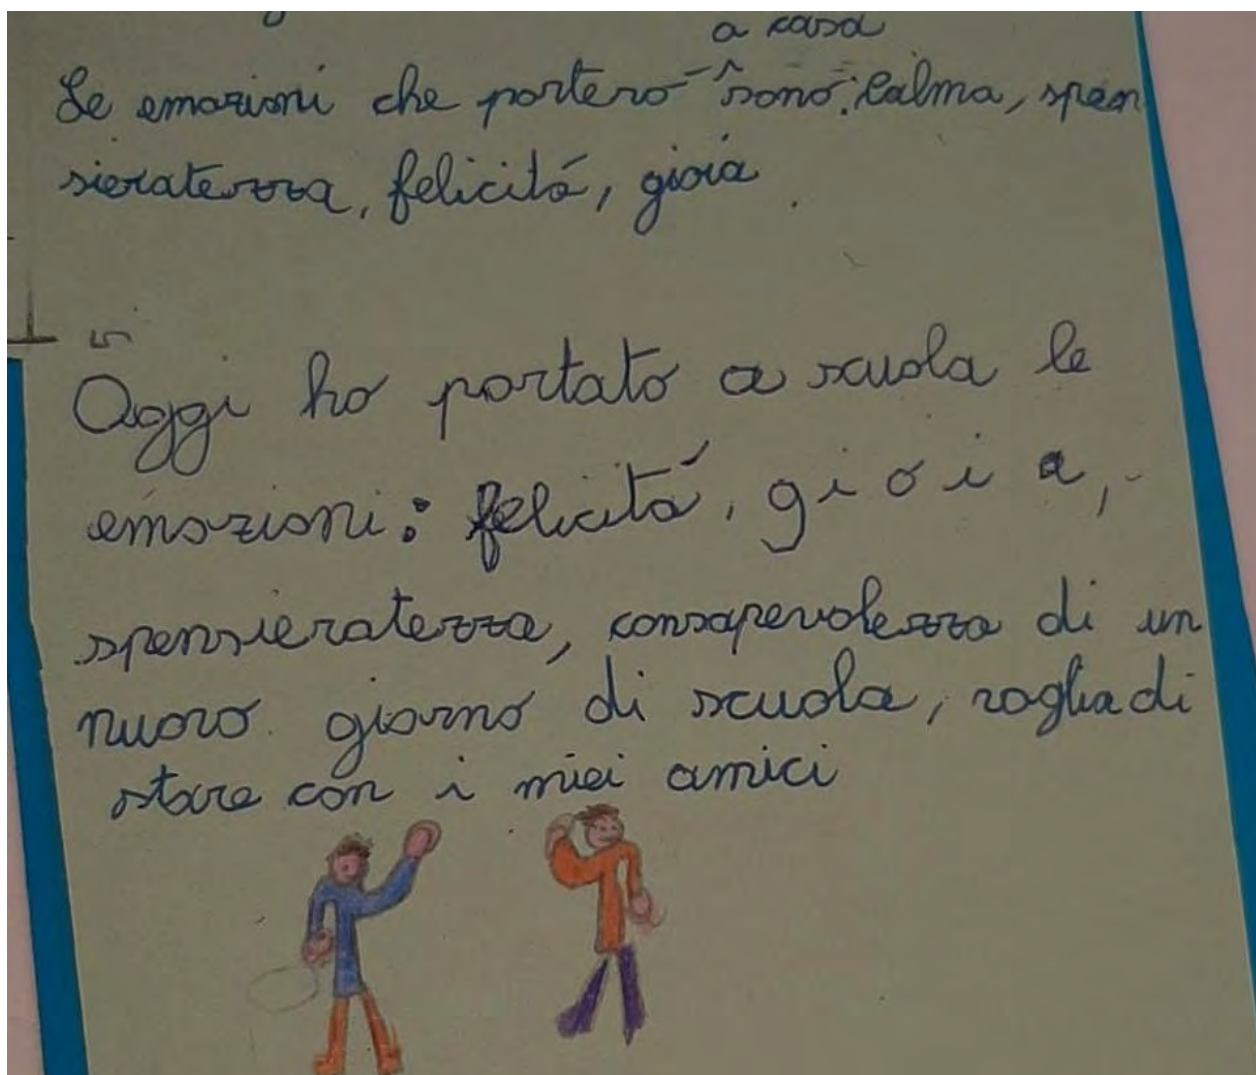 a casa
Le emozioni che porterò sono: calma, spen
sieratezza, felicitá, gioia.
Oggi ho portato a scuola le
emozioni: felicitá, gioia,
spensieratezza, consapevolezza di un
nuovo giorno di scuola, voglia di
stare con i miei amici